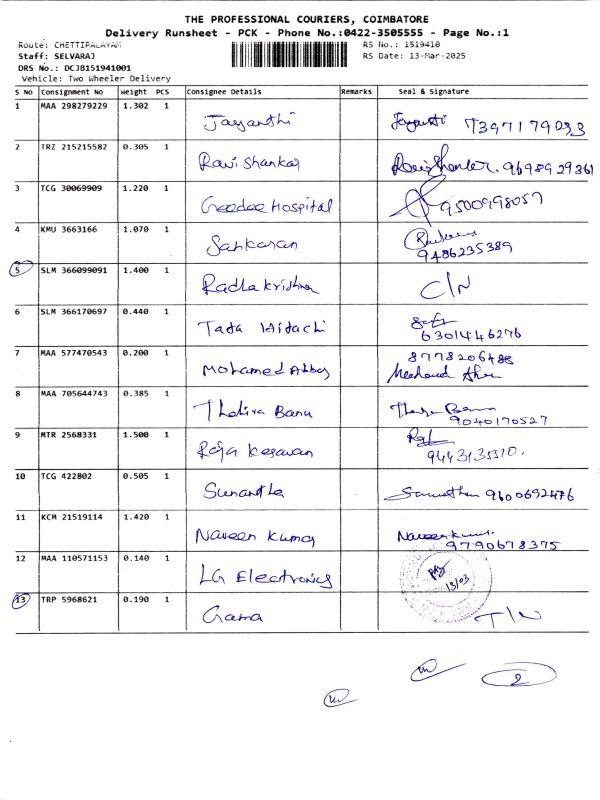 THE PROFESSIONAL COURIERS, COIMBATORE
Delivery Runsheet - PCK - Phone No.:0422-3505555 - Page No.:1
Route: CHETTIPALAYAM
RS No.: 1519410
Staff: SELVARAJ
RS Date: 13-Mar-2025
DRS No.: DCJB151941001
Vehicle: Two Wheeler Delivery
S No Consignment No Weight PCS Consignee Details Remarks Seal & Signature
1 MAA 298279229 1.302 1 Jayanthi Jayanti
2 TRZ 215215582 0.305 1 Ravi Shankar 9698929361
3 TCG 30069909 1.220 1 Geedee Hospital 9500998057
4 KMU 3663166 1.070 1 Sankaran
9486235389
5 SLM 366099091 1.400 1 Radha krishna C/N
6 SLM 366170697 0.440 1 Tata Hitachi
6301446276
7 MAA 577470543 0.200 1 Mohamed Abbas 8778206488
8 MAA 705644743 0.385 1 Thahira Banu
9040170527
9 MTR 2568331 1.500 1 Raja Kesavan
10 TCG 422802 0.505 1 Sunantha 9600692476
11 KCM 21519114 1.420 1 Naveen Kumar Naveenkumar
9790678375
12 MAA 110571153 0.140 1 LG Electronics
13/03
13 TRP 5968621 0.190 1 Gama T/N
2